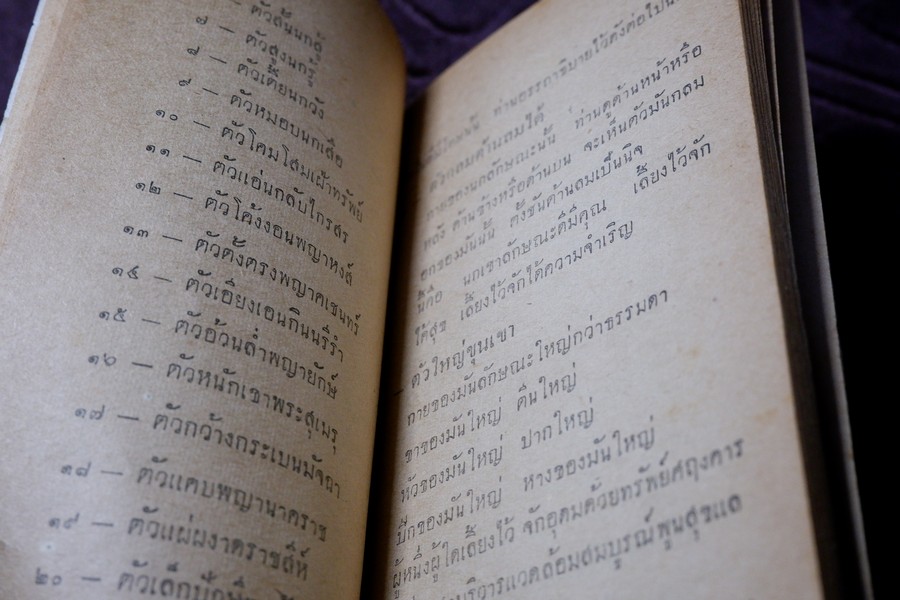 ตัวสั้นนกคู้
๗ — ตัวสูงนกรู้
๘ — ตัวเตี้ยนกวัง
๙ — ตัวหมอบนกเสือ
๑๐ — ตัวโคมโสมเฝ้าทรัพย์
๑๑ — ตัวแอ่นกลับไกรสร
๑๒ — ตัวโค้งงอนพญาหงส์
๑๓ — ตัวตั้งตรงพญาคเชนทร์
๑๔ — ตัวเอียงเอนกินนรีรำ
๑๕ — ตัวอ้วนล่ำพญายักษ์
๑๖ — ตัวหนักเขาพระสุเมรุ
๑๗ — ตัวกว้างกระเบนมัจฉา
๑๘ — ตัวแคบพญานาคราช
๑๙ — ตัวแผ่ผงาดราชสีห์
๒๐ — ตัวเล็ก
ท่านอรรถาธิบายไว้ดังต่อไปนี้
ตัวกลมด้านลมได้
กายของนกลักษณะนั้น ท่านดูด้านหน้าหรือ
หลัง ด้านข้างหรือด้านบน จะเห็นตัวมันกลม
อกของมันนั้น ตั้งชันด้านลมเป็นนิจ
นี้คือ นกเขาลักษณะดีมีคุณ เลี้ยงไว้จัก
ได้สุข เลี้ยงไว้จักได้ความจำเริญ
— ตัวใหญ่ขุนเขา
กายของมันลักษณะใหญ่กว่าธรรมดา
ขาของมันใหญ่ ตีนใหญ่
หัวของมันใหญ่ ปากใหญ่
ปีกของมันใหญ่ หางของมันใหญ่
ผู้หนึ่งผู้ใดเลี้ยงไว้ จักอุดมด้วยทรัพย์ศฤงคาร
บริวารแวดล้อมสมบูรณ์พูนสุขแล